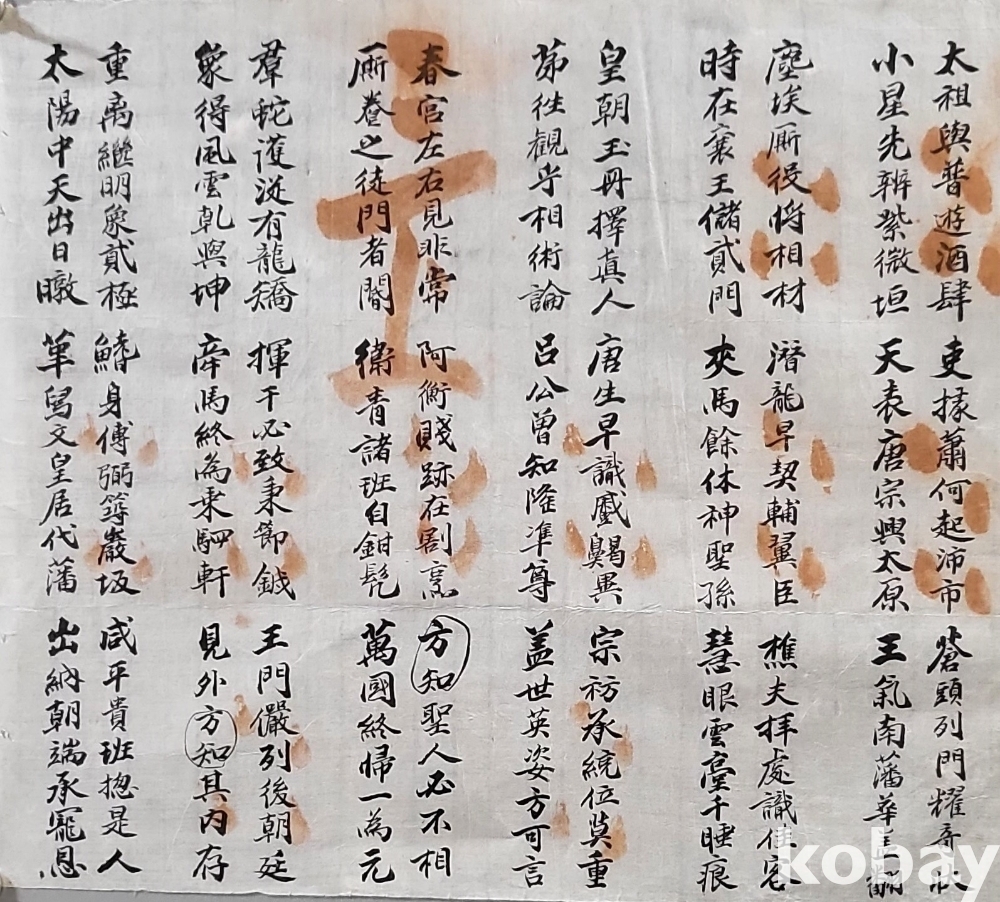 太祖與普遊酒肆 吏掾蕭何起沛市 蒼頭列門耀奇狀
小星先辨紫微垣 天表唐宗興太原 王氣南藩華盖翻
塵埃厮役将相材 潛龍早契輔翼臣 樵夫拜處識佳客
時在襄王儲貳門 夾馬餘休神聖孫 慧眼雲臺千睡痕
皇朝玉冊擇真人 唐生早識戚鶡異 宗祊承統位莫重
苐往観乎相術論 呂公曾知隆準尊 盖世英姿方可言
春宮左右見非常 阿衡賤跡在割烹 方知聖人必不相
厮養之徒門者閽 衛青諸班自鉗髠 萬國終歸一為元
羣蛇護従有龍矯 揮干必致秉節鉞 王門儼列後朝廷
象得風雲乹與坤 牽馬終為乗駟軒 見外方知其内存
重離継明象貳極 身傅弼等巖坂 咸平貴班揔是人
太陽中天出日暾 舄文皇居代藩 出納朝端承寵恩
kobay